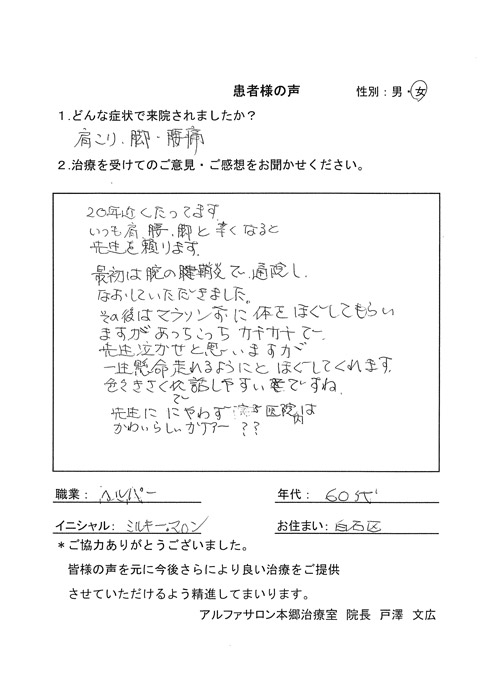 患者様の声 性別：男・女
1.どんな症状で来院されましたか？
肩こり、脚・腰痛
2.治療を受けてのご意見・ご感想をお聞かせください。
20年近くたってます。
いつも肩、腰、脚と辛くなると
先生を頼ります。
最初は腕の腱鞘炎で、通院し、
なおしていただきました。
その後はマラソン前に体をほぐしてもらい
ますがあっちこっちカチカチで
先生泣かせと思いますが
一生懸命走れるようにとほぐしてくれます。
気さくで話しやすいですね、
先生ににやわず 医院内は
かわいらしいカフェー？？
職業：ヘルパー 年代：60代
イニシャル：ミルキーマロン お住まい：白石区
＊ご協力ありがとうございました。
皆様の声を元に今後さらにより良い治療をご提供
させていただけるよう精進してまいります。
アルファサロン本郷治療室 院長 戸澤 文広